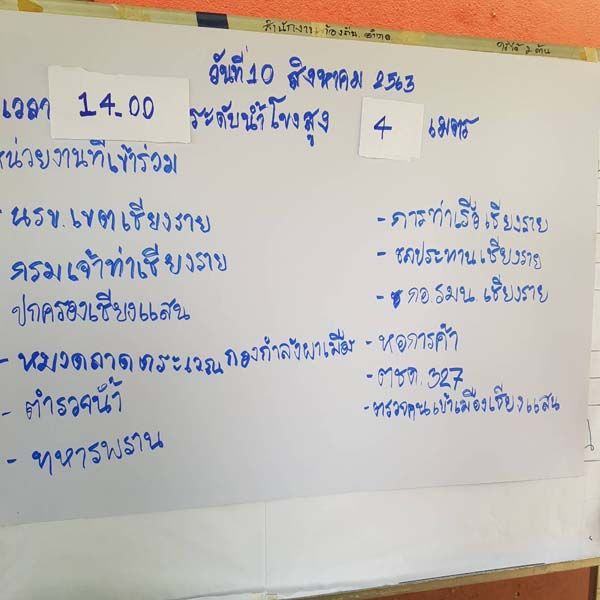 สำนักงาน ท้องถิ่น อำเภอ
วันที่ 10 สิงหาคม 2563
เวลา 14.00 ระดับน้ำโขงสูง 4 เมตร
หน่วยงานที่เข้าร่วม
- นรข. เขตเชียงราย
กรมเจ้าท่าเชียงราย
ปกครองเชียงแสน
- หมวดลาดตระเวน กองกำลังผาเมือง
- ตำรวจน้ำ
- ทหารพราน
- การท่าเรือเชียงราย
- ชลประทานเชียงราย
- กอ.รมน เชียงราย
- หอการค้า
- ตชด. 327
- ตรวจคนเข้าเมืองเชียงแสน